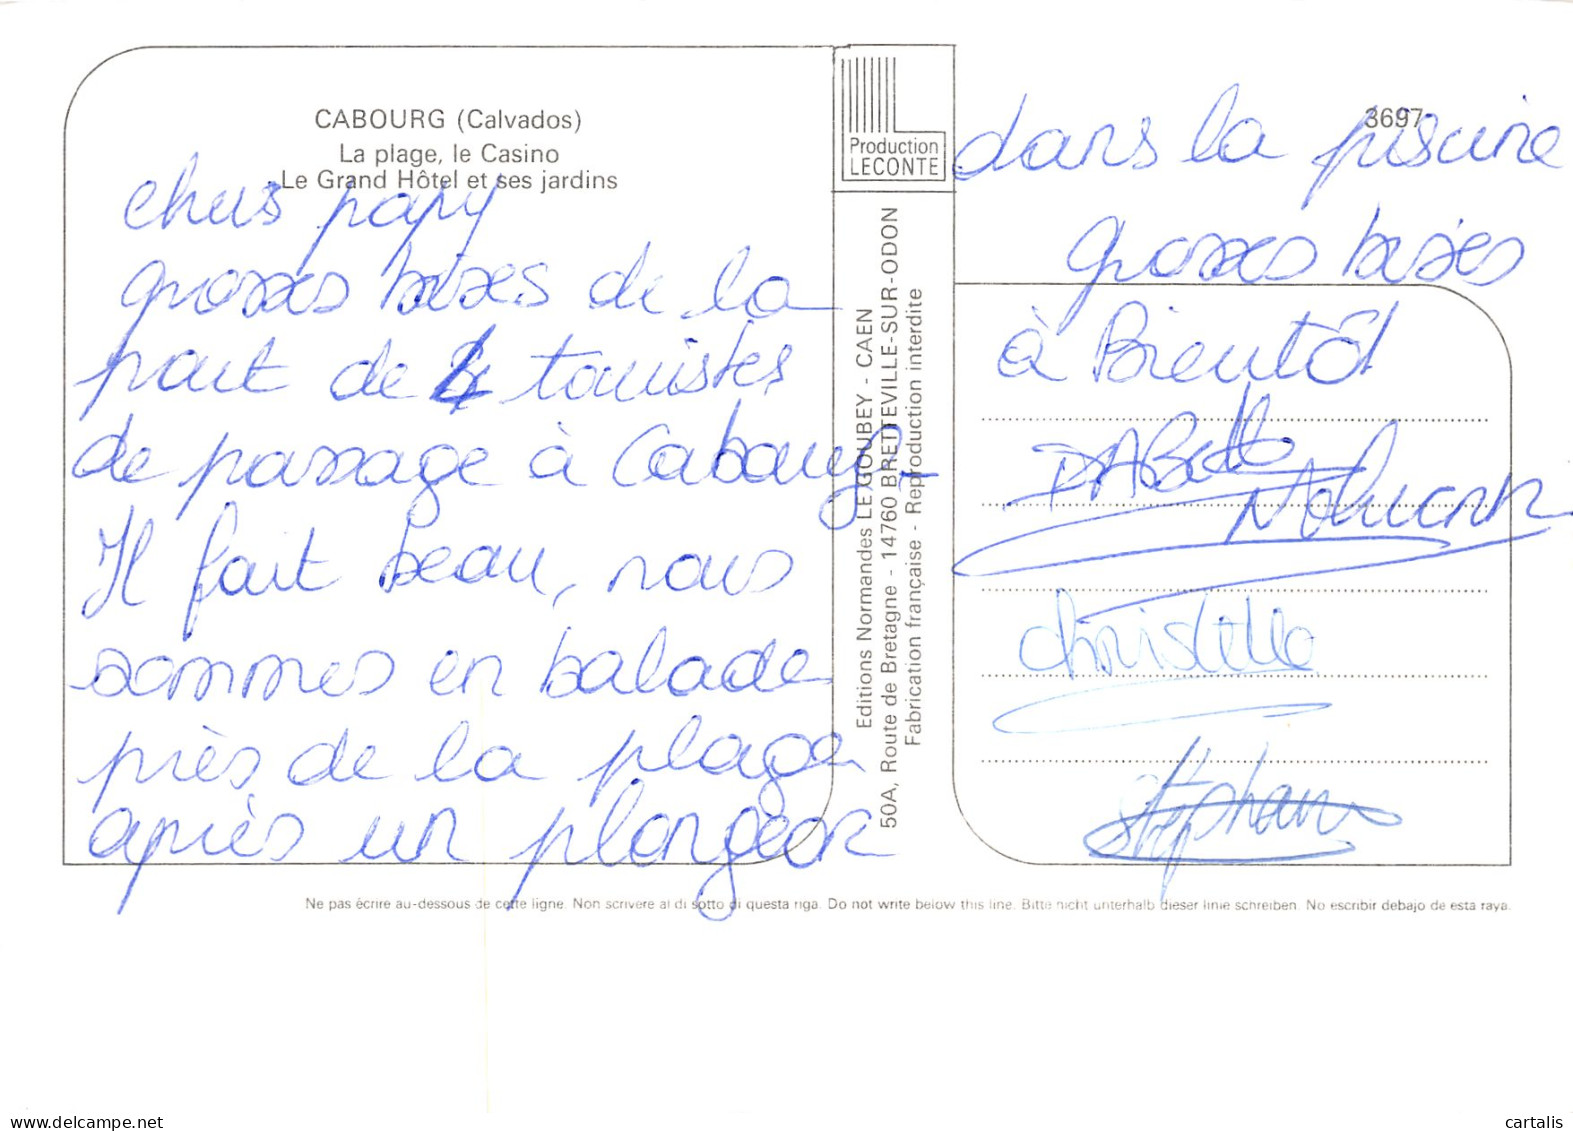 CABOURG (Calvados)
La plage, le Casino
Le Grand Hôtel et ses jardins
chers papy
grosses bises de la
part de 4 touristes
de passage à Cabourg
Il fait beau, nous
sommes en balade
près de la plage
après un plongeon
Production
LECONTE
Editions Normandes LE GOUBEY - CAEN
50A, Route de Bretagne - 14760 BRETTEVILLE-SUR-ODON
Fabrication française - Reproduction interdite
3697
dans la piscine
grosses bises
à Bientôt
christelle
stéphane
Ne pas écrire au-dessous de cette ligne. Non scrivere al di sotto di questa riga. Do not write below this line. Bitte nicht unterhalb dieser linie schreiben. No escribir debajo de esta raya.
delcampe.net
cartalis